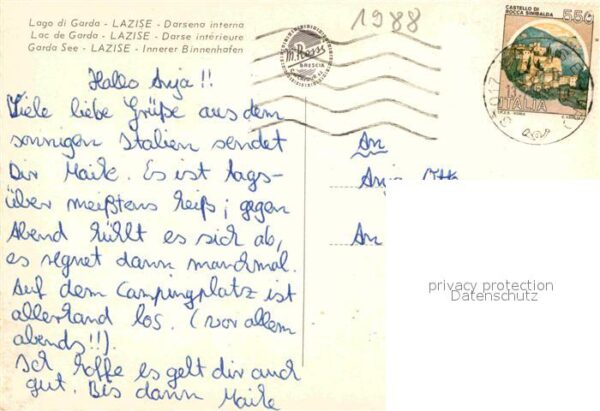 Lago di Garda - LAZISE - Darsena interna
Lac de Garda - LAZISE - Darse intérieure
Garda See - LAZISE - Innerer Binnenhafen
1988
BRESCIA
CASTELLO DI
ROCCA SINIBALDA
550
ITALIA
Hallo Anja!!
Viele liebe Grüße aus dem
sonnigen Italien sendet
Dir Maike. Es ist tags-
über meißtens heiß; gegen
Abend kühlt es sich ab,
es regnet dann manchmal.
Auf dem Campingplatz ist
allerhand los. (vor allem
abends!!).
Ich hoffe es geht dir auch
gut. Bis dann Maike
An
Anja
An
privacy protection
Datenschutz